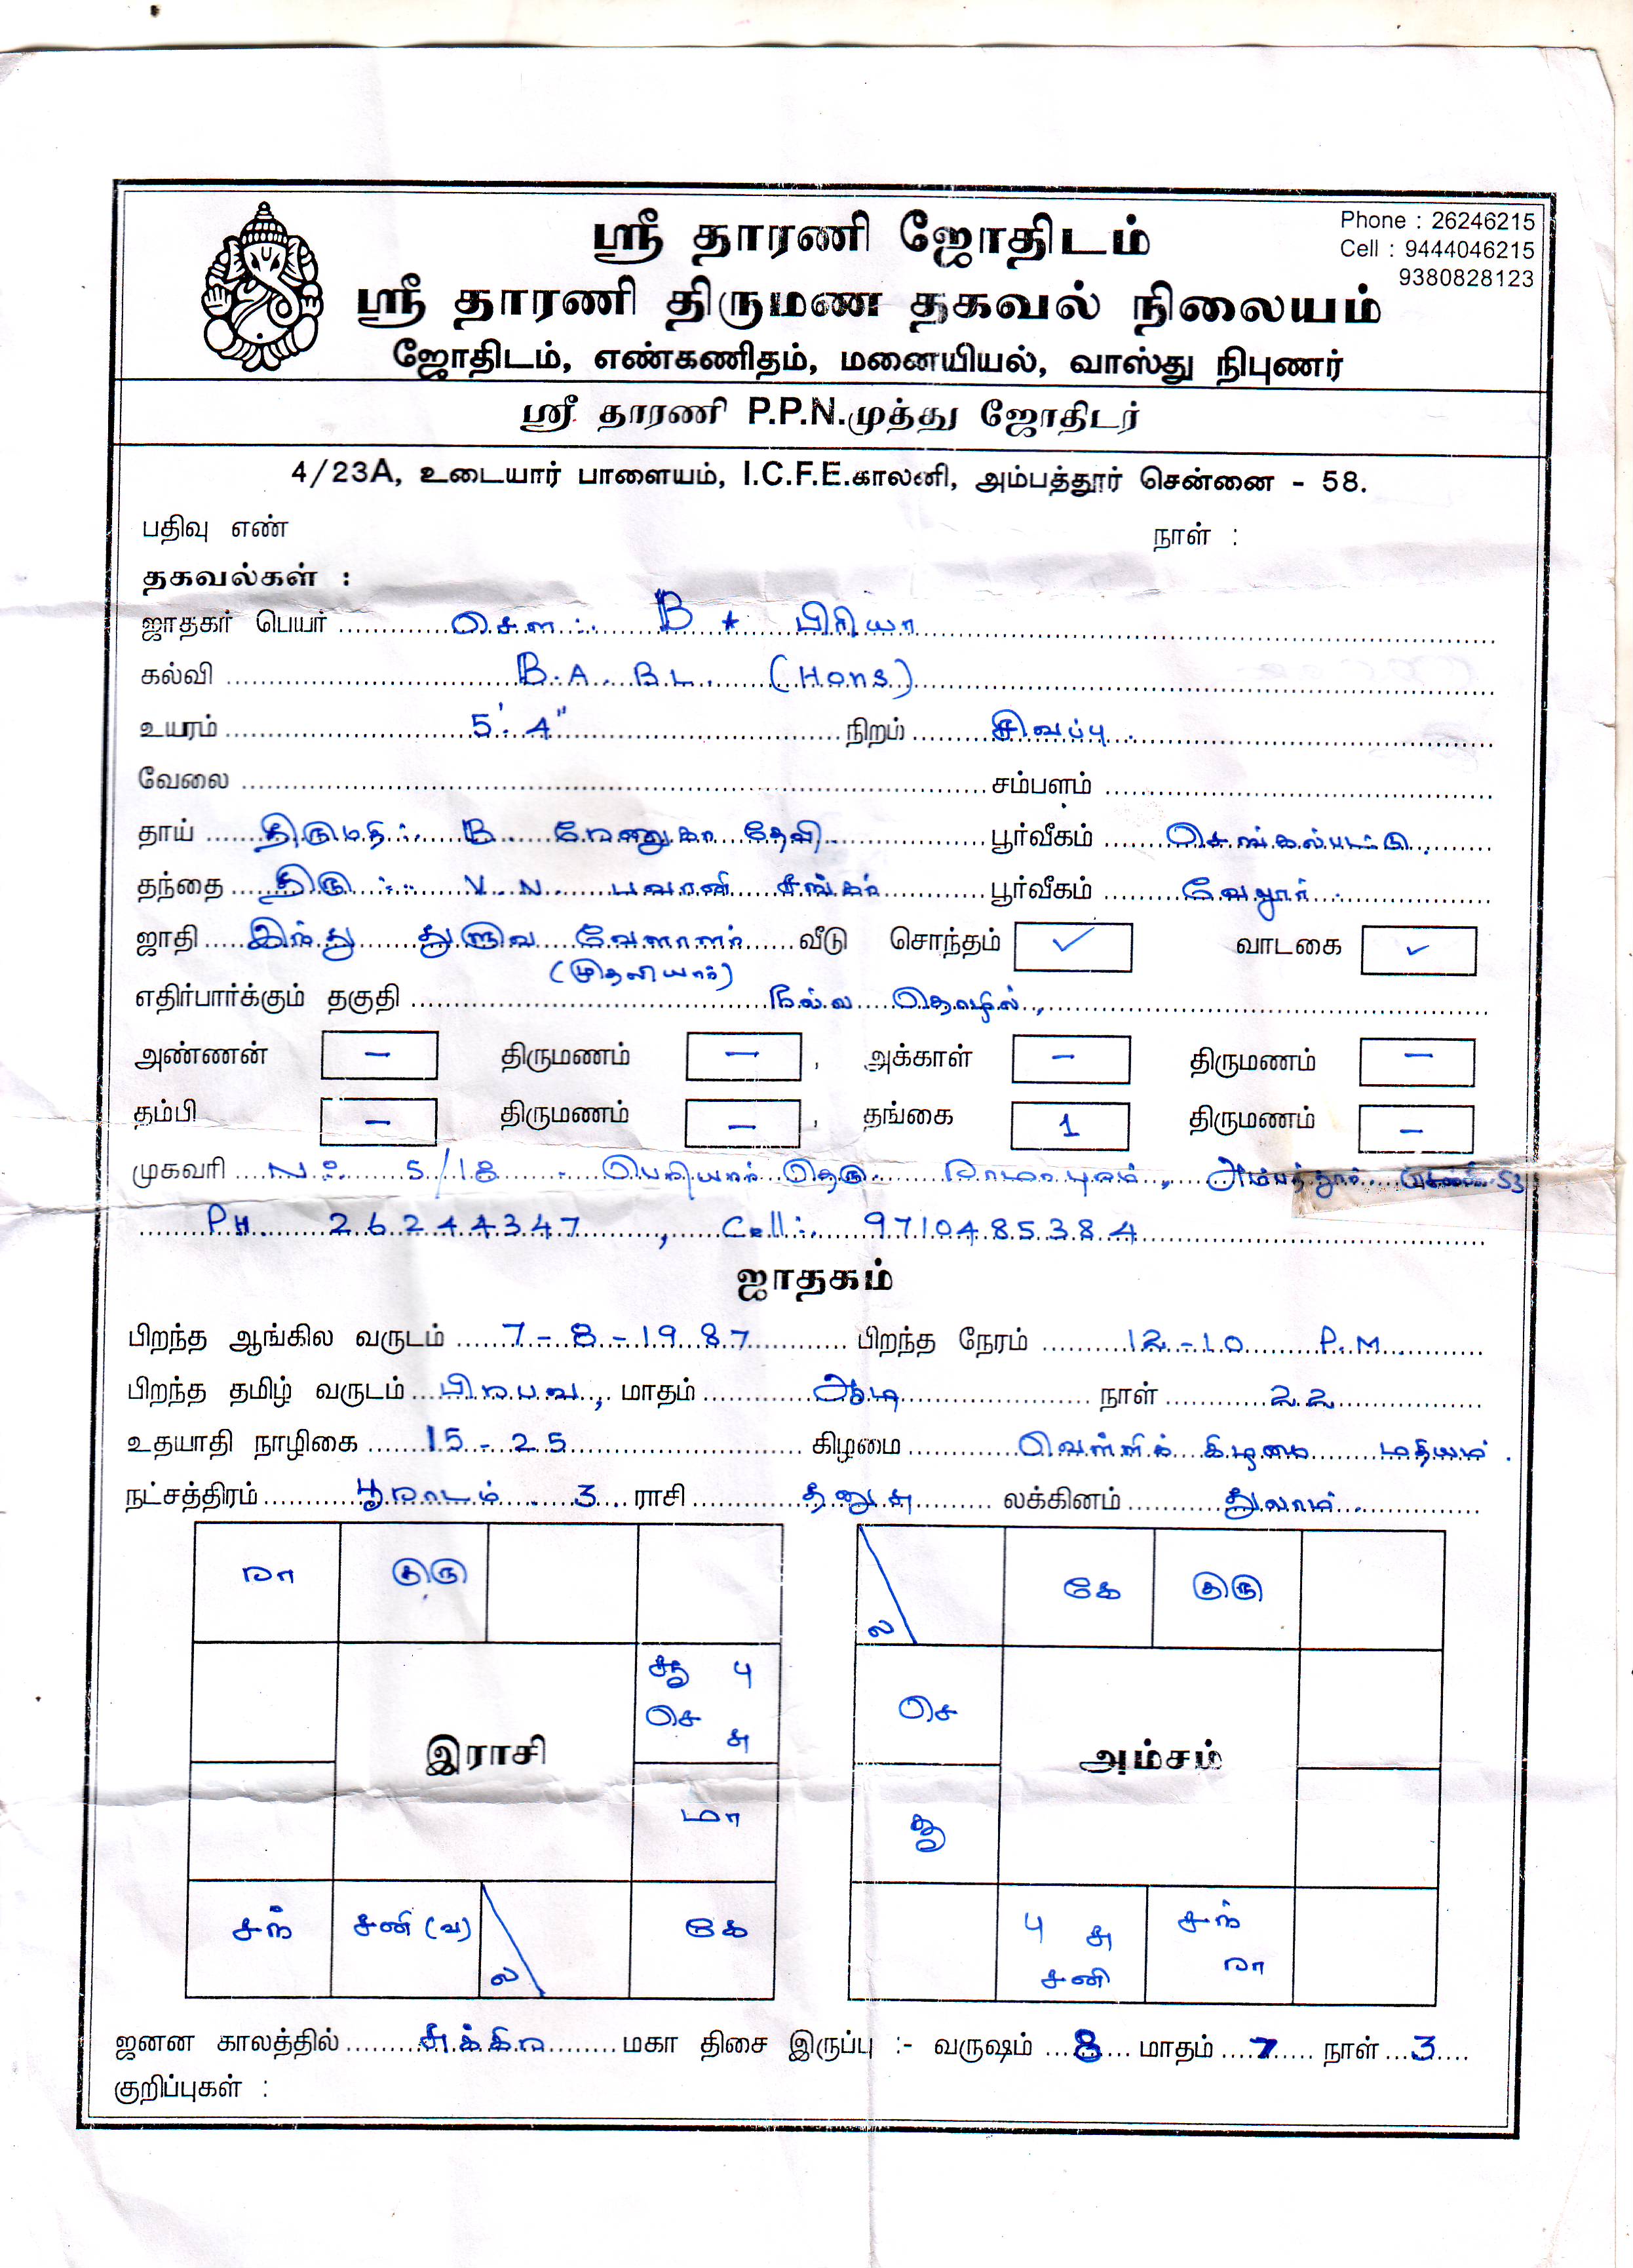 ஸ்ரீ தாரணி ஜோதிடம்
Phone : 26246215
Cell : 9444046215
9380828123
ஸ்ரீ தாரணி திருமண தகவல் நிலையம்
ஜோதிடம், எண்கணிதம், மனையியல், வாஸ்து நிபுணர்
ஸ்ரீ தாரணி P.P.N.முத்து ஜோதிடர்
4/23A, உடையார் பாளையம், I.C.F.E.காலனி, அம்பத்தூர் சென்னை - 58.
பதிவு எண் நாள் :
தகவல்கள் :
ஜாதகர் பெயர் செள :. B * பிரியா
கல்வி B.A. BL. (Hons)
உயரம் 5'. 4" நிறம் சிவப்பு.
வேலை சம்பளம்
தாய் திருமதி :. B ரேணுகா தேவி பூர்வீகம் செங்கல்பட்டு.
தந்தை திரு :. V. N. பவானி சங்கர் பூர்வீகம் வேலூர்.
ஜாதி இந்து துளுவ வேளாளர் வீடு சொந்தம் ✓ வாடகை ✓
(முதலியார்)
எதிர்பார்க்கும் தகுதி நல்ல தொழில்,
அண்ணன் – திருமணம் – , அக்காள் – திருமணம் –
தம்பி – திருமணம் – , தங்கை 1 திருமணம் –
முகவரி No. 5/18 - பெரியார் தெரு. ராமாபுரம், அம்பத்தூர். சென்னை 53
PH. 26244347, Cell :. 9710485384
ஜாதகம்
பிறந்த ஆங்கில வருடம் 7-8-1987 பிறந்த நேரம் 12-10 P.M.
பிறந்த தமிழ் வருடம் பிரபவ, மாதம் ஆடி நாள் 22
உதயாதி நாழிகை 15-25 கிழமை வெள்ளிக் கிழமை மதியம்.
நட்சத்திரம் பூராடம். 3 ராசி தனுசு லக்கினம் துலாம்.
ரா குரு ல கே குரு
சூ பு
செ சு செ
இராசி அம்சம்
மா சூ
சந் சனி (வ) ல கே பு சு சனி சந் ரா
ஜனன காலத்தில் சுக்கிர மகா திசை இருப்பு :- வருஷம் 8 மாதம் 7 நாள் 3
குறிப்புகள் :